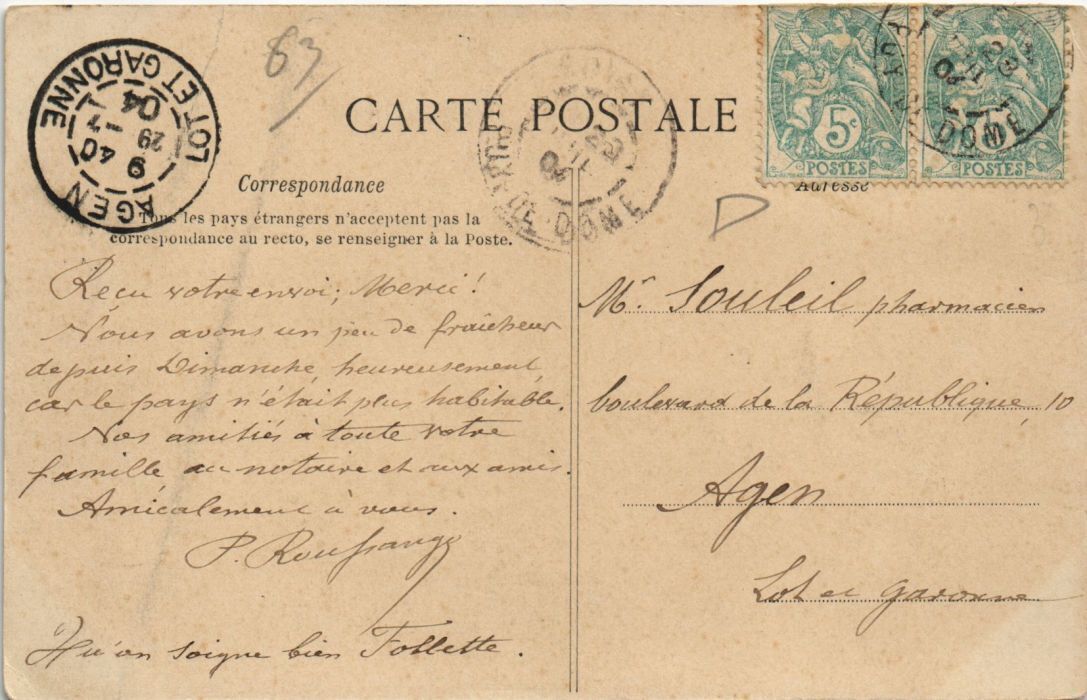 63
CARTE POSTALE
AGEN
9 40
29 - 7
04
LOT ET GARONNE
DE DOME
5c
POSTES
POSTES
DOME
Correspondance
Adresse
Tous les pays étrangers n'acceptent pas la
correspondance au recto, se renseigner à la Poste.
Reçu votre envoi; Merci!
Nous avons un peu de fraîcheur
depuis Dimanche, heureusement
car le pays n'était plus habitable.
Nos amitiés à toute votre
famille au notaire et aux amis.
Amicalement à vous.
P.
Qu'on soigne bien Follette.
Mr. Souleil pharmacien
boulevard de la République, 10
Agen
Lot et Garonne